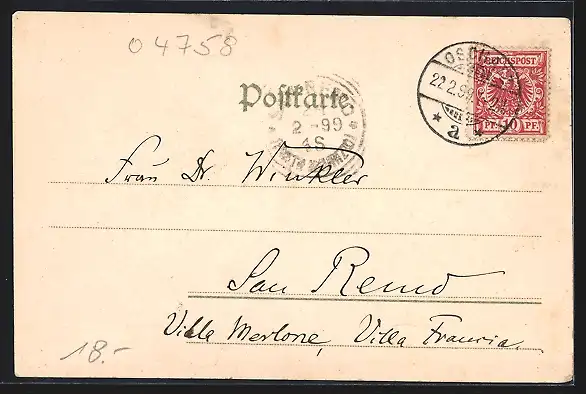 04758
REICHSPOST
22.2.99
PF. 10 PF.
* a
Postkarte
2 -99
Frau Dr. Winkler
San Remo
Villa Merlone, Villa Francia.
18.-